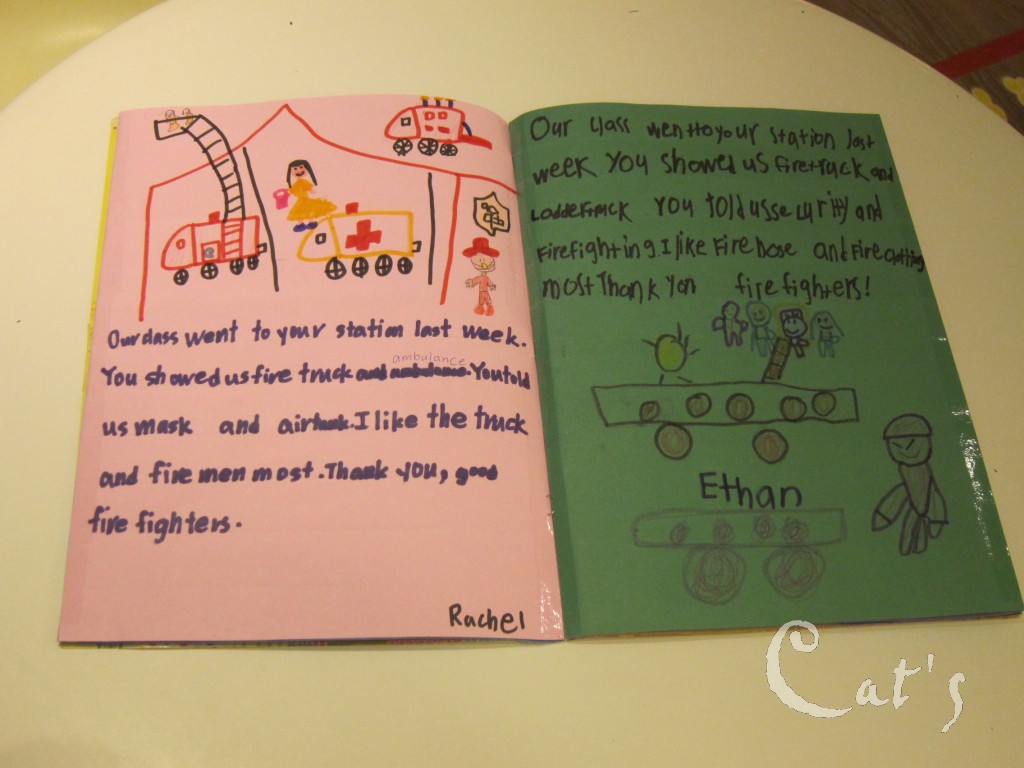 Our class went to your station last week.
You showed us fire truck and ambulance. You told
ambulance
us mask and airtank. I like the truck
and fire men most. Thank you, good
fire fighters.
Rachel
Our class went to your station last
week You showed us firetruck and
You told us security and
Firefighting. I like Fire hose and Fire
most Thank You fire fighters!
Ethan
Cat's